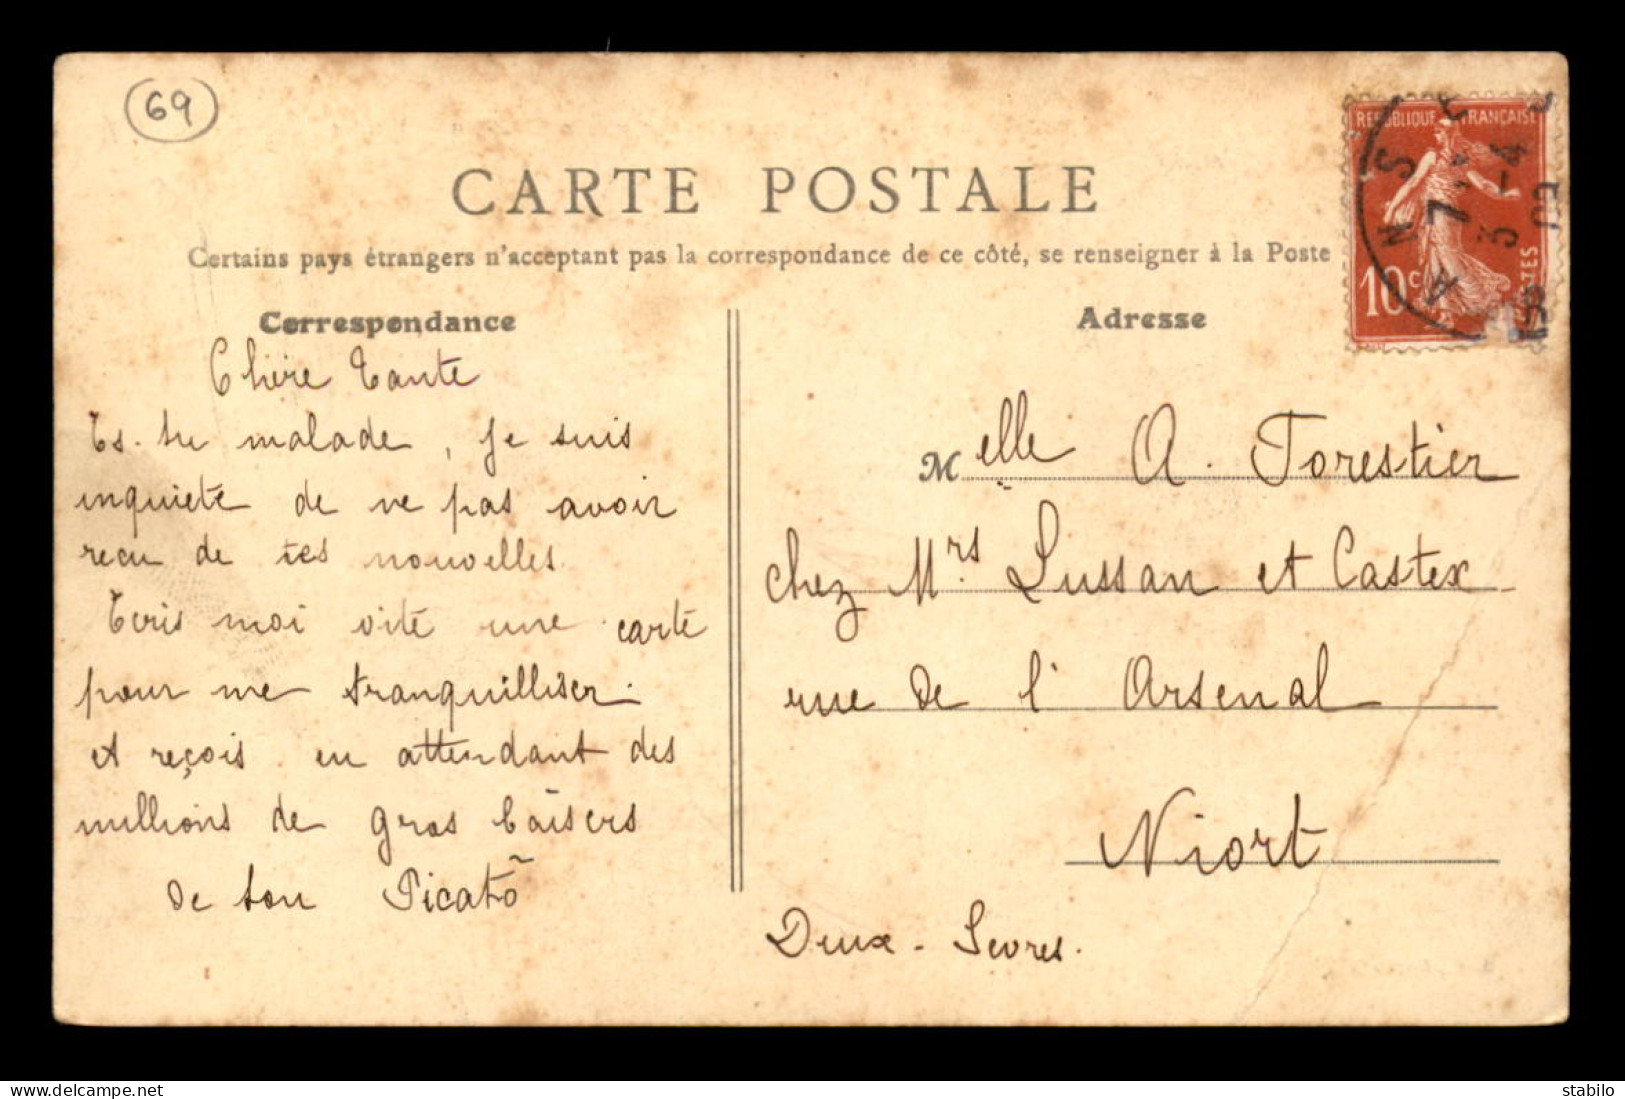 69
CARTE POSTALE
Certains pays étrangers n'acceptant pas la correspondance de ce côté, se renseigner à la Poste
Correspondance
Chère Tante
Es-tu malade, je suis
inquiete de ne pas avoir
recu de tes nouvelles
Ecris moi vite une carte
pour me tranquilliser.
et reçois en attendant des
millions de gros baisers
de ton Picató
Adresse
Melle A. Forestier
chez Mrs Lussan et Castex
rue de l'Arsenal
Niort
Deux-Sevres.
REPUBLIQUE FRANÇAISE
10c
ANS
7
3 -4
09
delcampe.net
stabilo